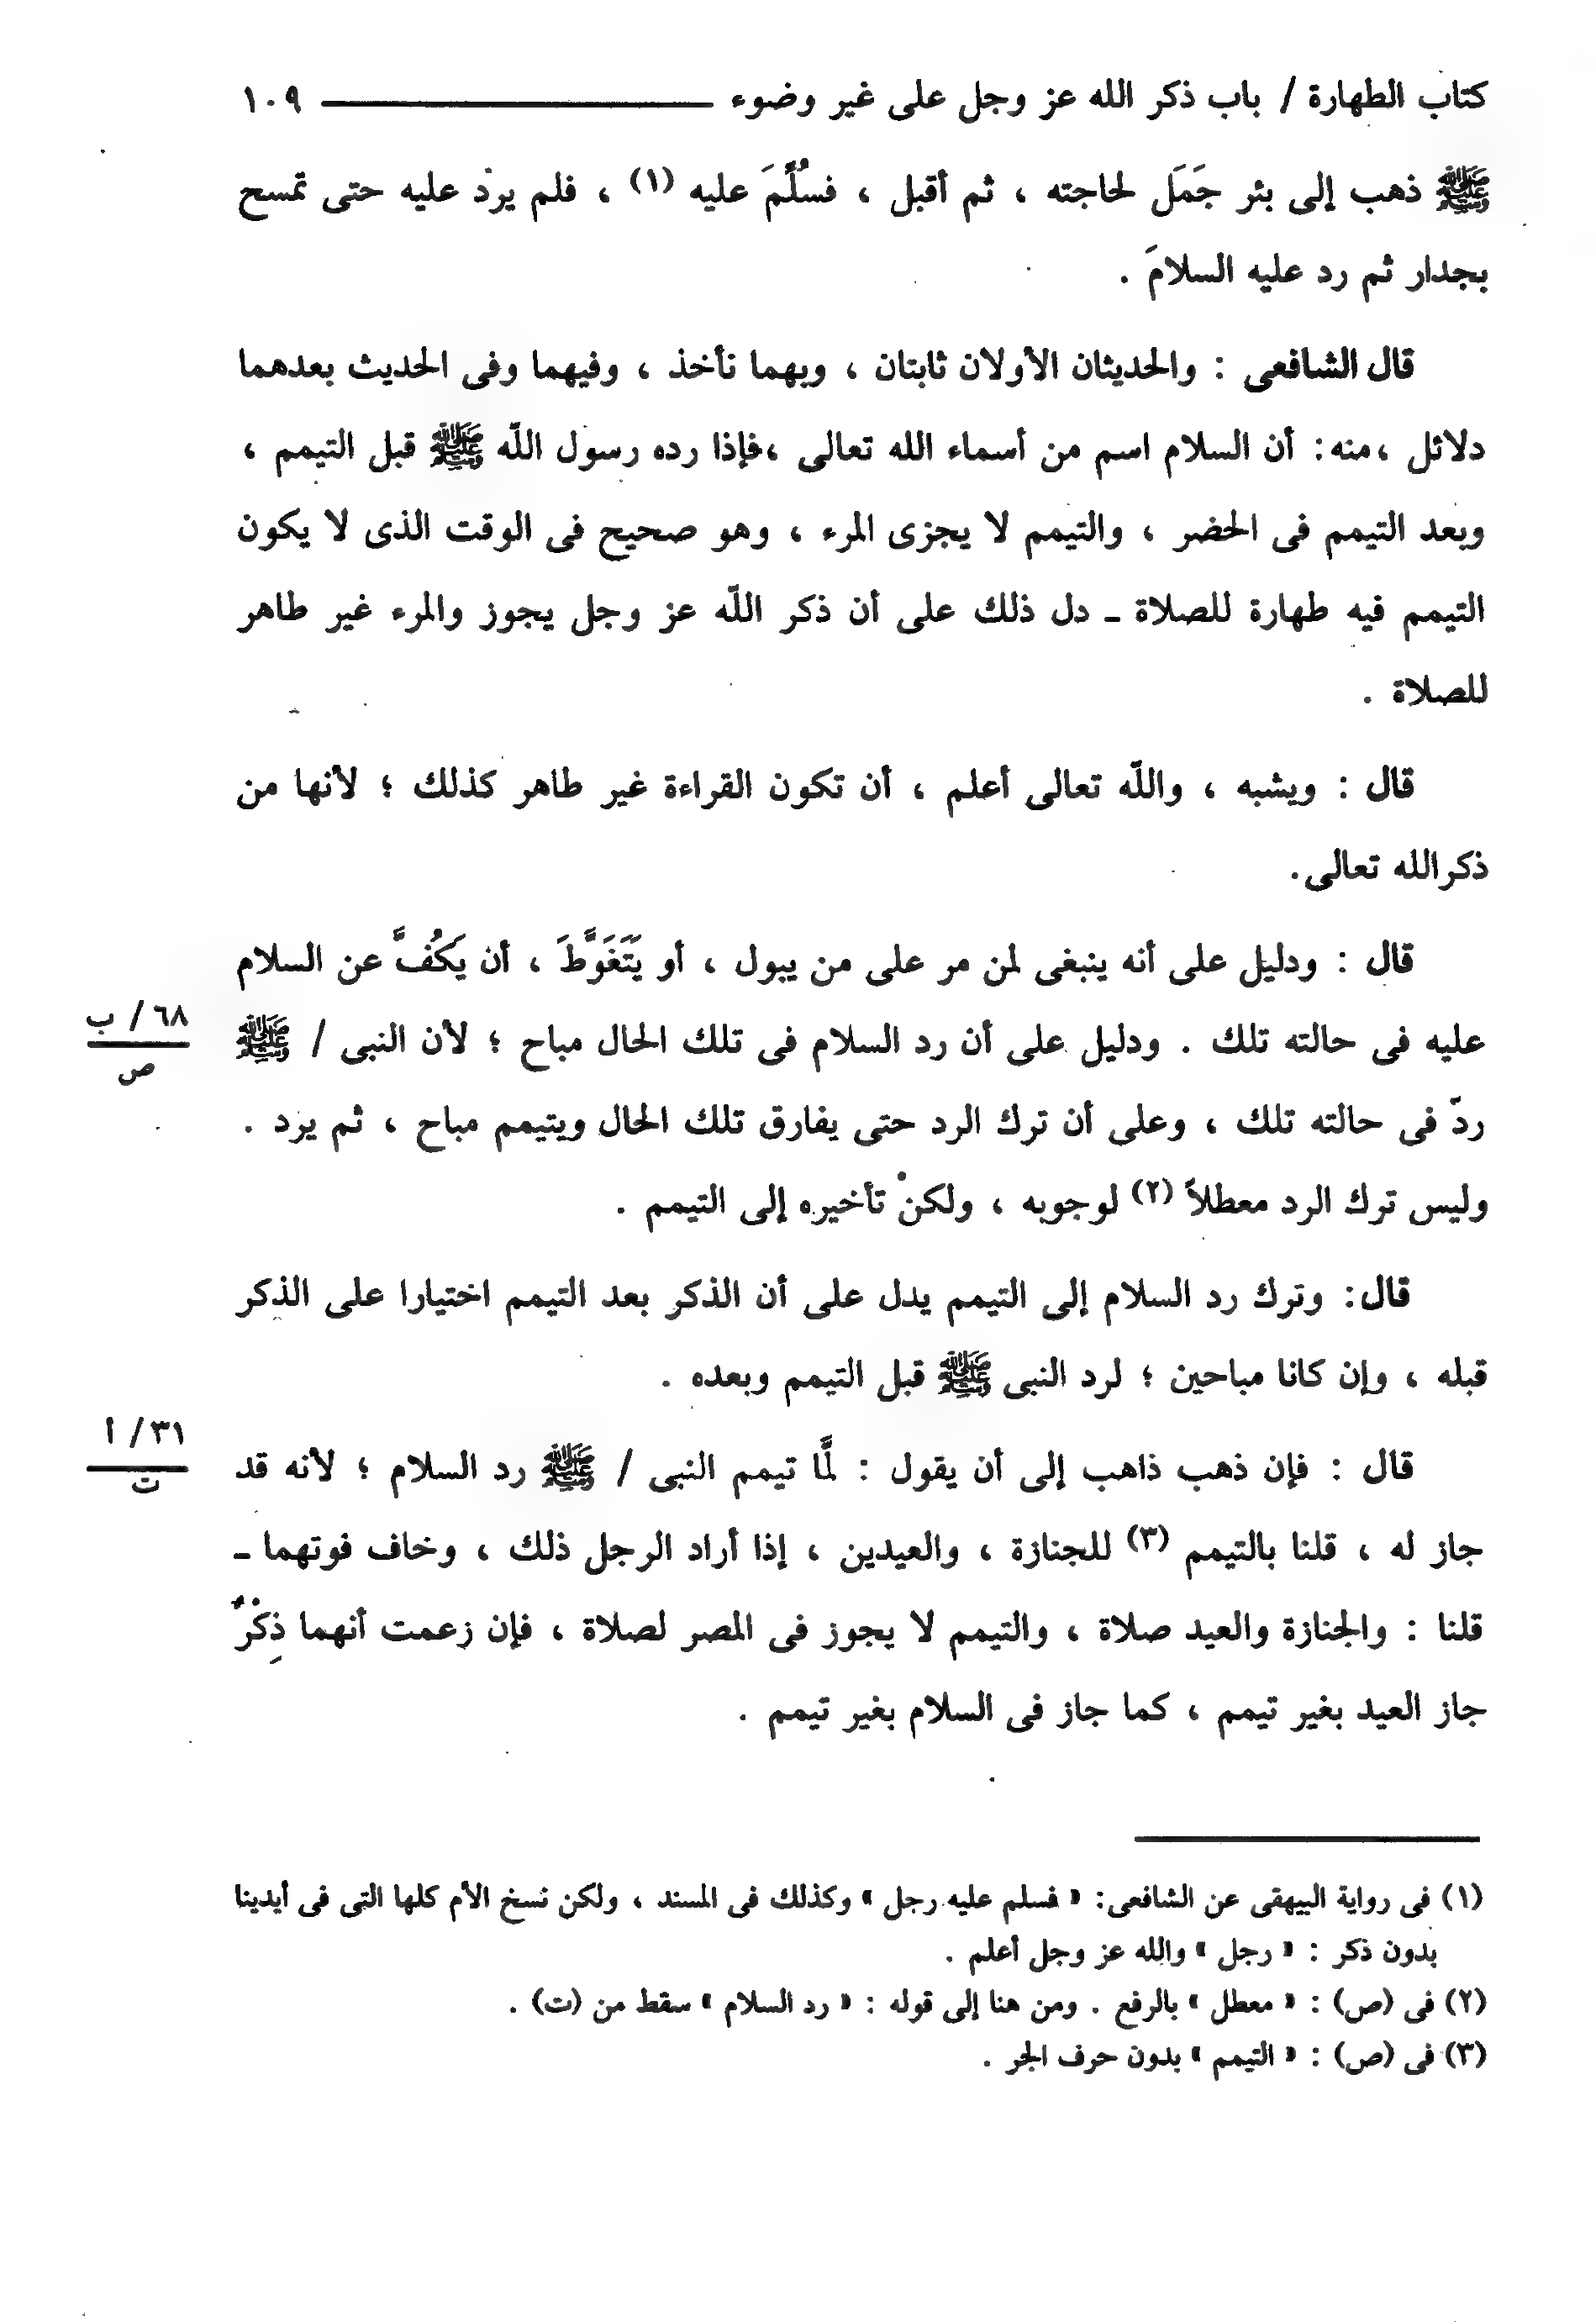 كتاب الطهارة / باب ذكر الله عز وجل على غير وضوء ــــــــــ ١٠٩
ﷺ ذهب إلى بئر جَمَل لحاجته ، ثم أقبل ، فسُلِّمَ عليه (١) ، فلم يردْ عليه حتى تمسح
بجدار ثم رد عليه السلامَ .
قال الشافعى : والحديثان الأولان ثابتان ، وبهما نأخذ ، وفيهما وفى الحديث بعدهما
دلائل ،منه: أن السلام اسم من أسماء الله تعالى ،فإذا رده رسول اللّه ﷺ قبل التيمم ،
وبعد التيمم فى الحضر ، والتيمم لا يجزى المرء ، وهو صحيح فى الوقت الذى لا يكون
التيمم فيه طهارة للصلاة ـ دل ذلك على أن ذكر اللّه عز وجل يجوز والمرء غير طاهر
للصلاة .
قال : ويشبه ، واللّه تعالى أعلم ، أن تكون القراءة غير طاهر كذلك ؛ لأنها من
ذكرالله تعالى.
قال : ودليل على أنه ينبغى لمن مر على من يبول ، أو يَتَغَوَّطَ ، أن يَكُفَّ عن السلام
عليه فى حالته تلك . ودليل على أن رد السلام فى تلك الحال مباح ؛ لأن النبى / ﷺ
٦٨ / ب
ص
ردّ فى حالته تلك ، وعلى أن ترك الرد حتى يفارق تلك الحال ويتيمم مباح ، ثم يرد .
وليس ترك الرد معطلاً (٢) لوجوبه ، ولكنْ تأخيره إلى التيمم .
قال: وترك رد السلام إلى التيمم يدل على أن الذكر بعد التيمم اختيارا على الذكر
قبله ، وإن كانا مباحين ؛ لرد النبى ﷺ قبل التيمم وبعده .
قال : فإن ذهب ذاهب إلى أن يقول : لمَّا تيمم النبى / ﷺ رد السلام ؛ لأنه قد
٣١ / أ
ت
جاز له ، قلنا بالتيمم (٣) للجنازة ، والعيدين ، إذا أراد الرجل ذلك ، وخاف فوتهما ـ
قلنا : والجنازة والعيد صلاة ، والتيمم لا يجوز فى المصر لصلاة ، فإن زعمت أنهما ذِكْرٌ
جاز العيد بغير تيمم ، كما جاز فى السلام بغير تيمم .
(١) فى رواية البيهقى عن الشافعى: « فسلم عليه رجل » وكذلك فى المسند ، ولكن نسخ الأم كلها التى فى أيدينا
بدون ذكر : « رجل » والله عز وجل أعلم .
(٢) فى (ص) : « معطل » بالرفع . ومن هنا إلى قوله : « رد السلام » سقط من (ت) .
(٣) فى (ص) : « التيمم » بدون حرف الجر .